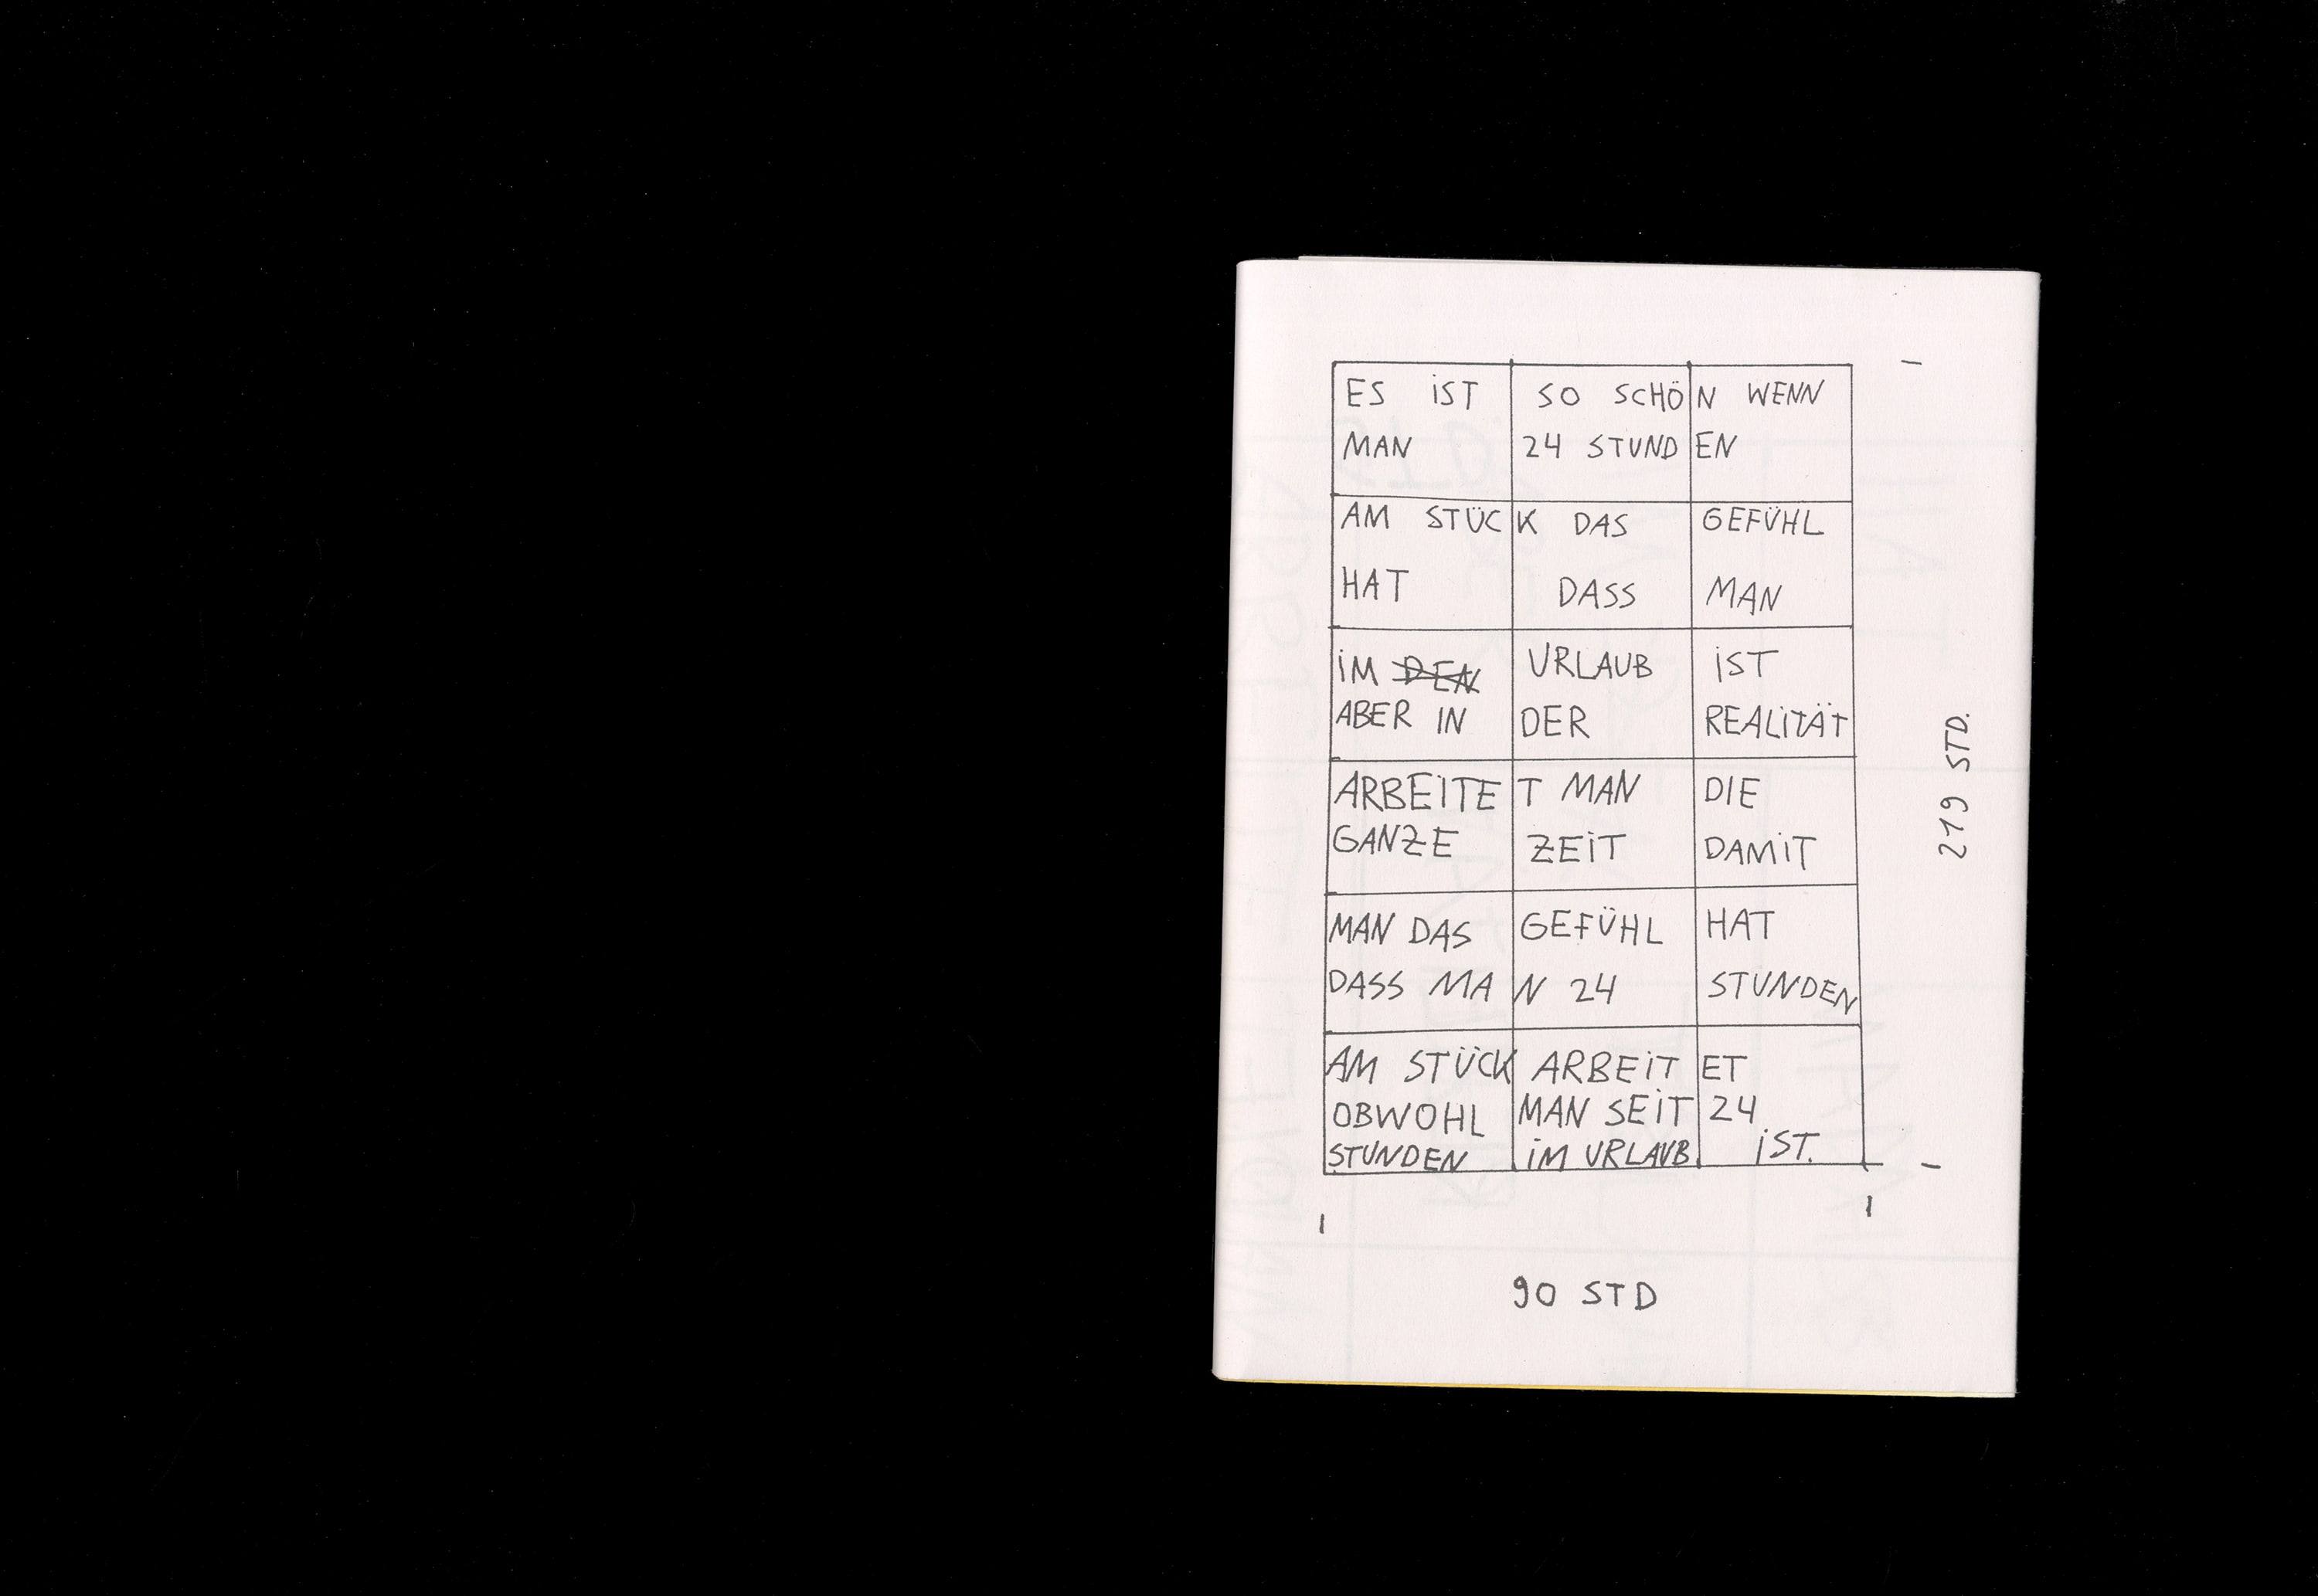 ES IST SO SCHÖN WENN
MAN 24 STUNDEN
AM STÜCK DAS GEFÜHL
HAT DASS MAN
IM DEN URLAUB IST
ABER IN DER REALITÄT
ARBEITET MAN DIE
GANZE ZEIT DAMIT
MAN DAS GEFÜHL HAT
DASS MAN 24 STUNDEN
AM STÜCK ARBEITET
OBWOHL MAN SEIT 24
STUNDEN IM URLAUB IST.
219 STD.
90 STD